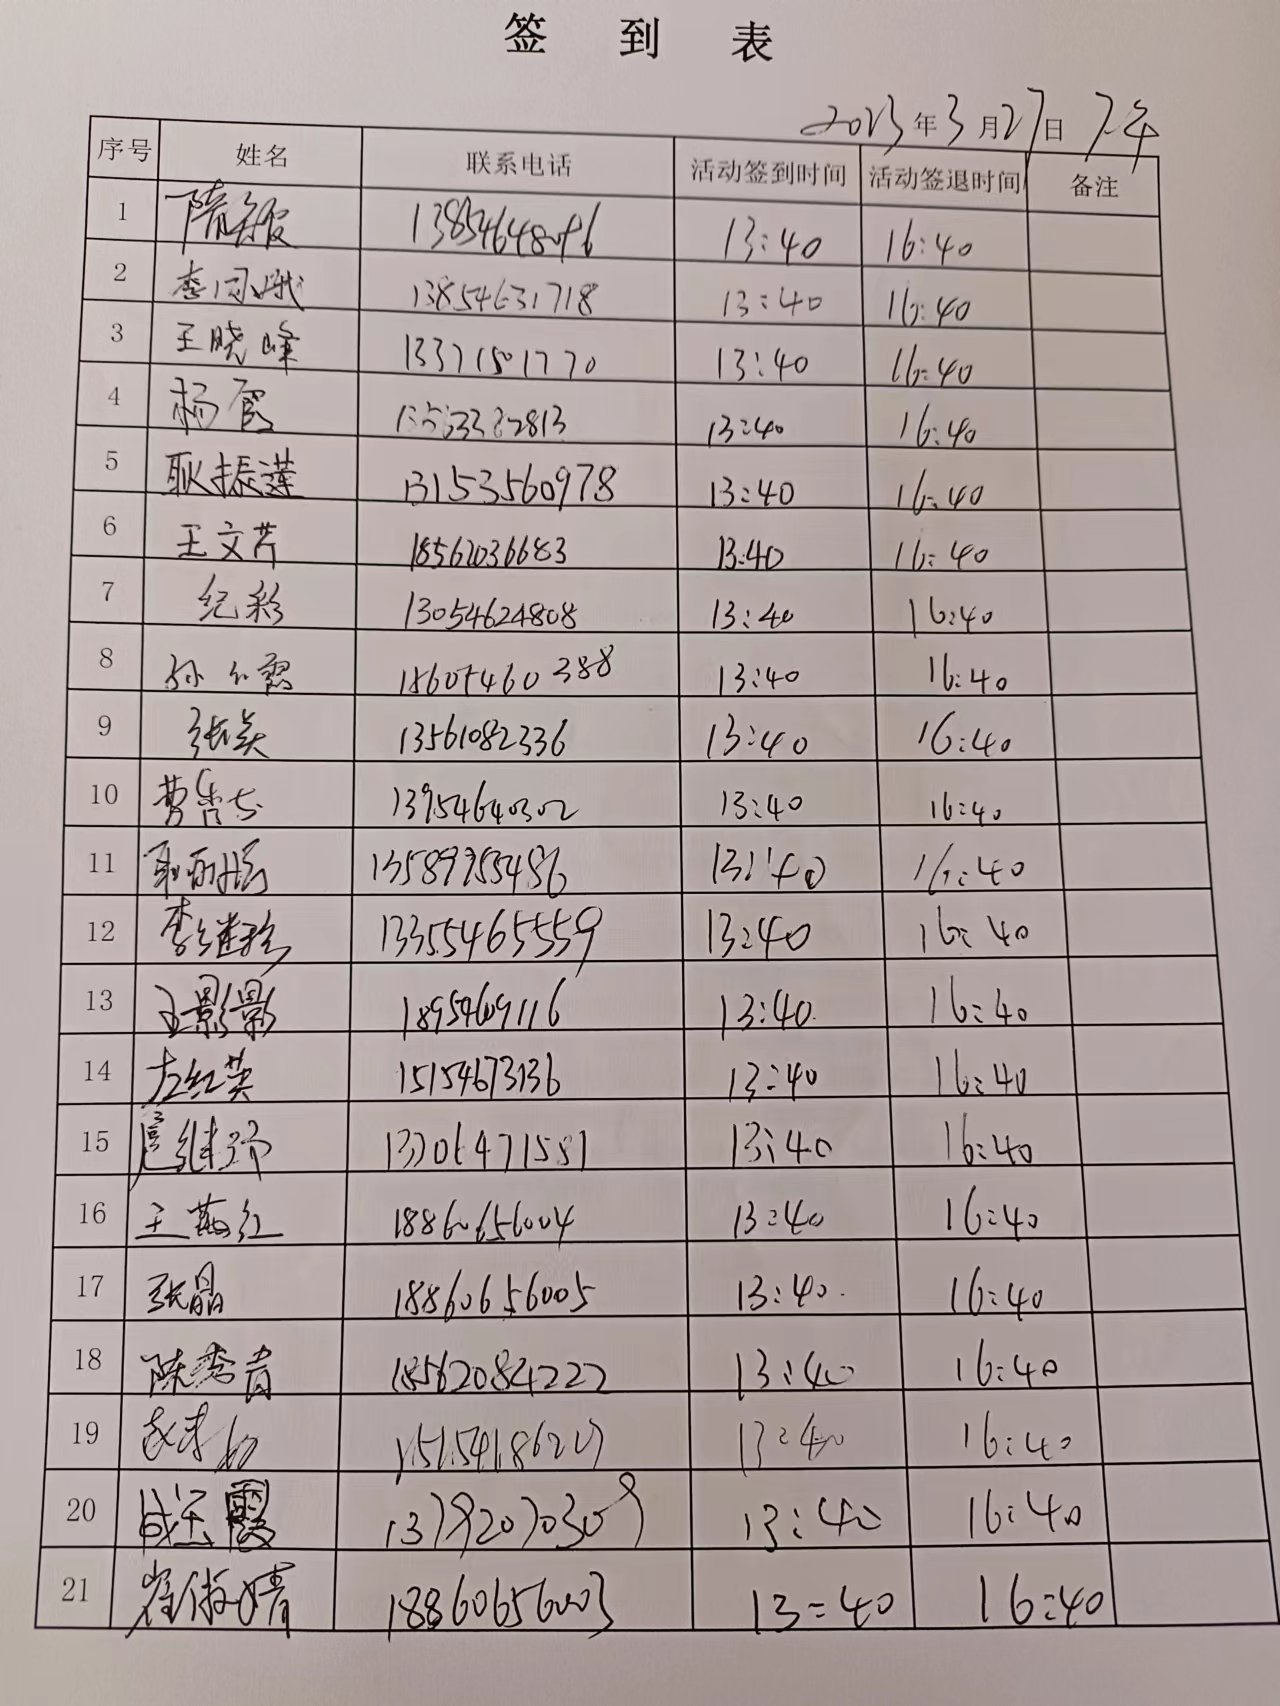 签 到 表
2023年3月27日 下午
序号 姓名 联系电话 活动签到时间 活动签退时间 备注
1 13:40 16:40
2 13854631718 13:40 16:40
3 王晓峰 13371501770 13:40 16:40
4 杨霞 13:40 16:40
5 耿振莲 13153560978 13:40 16:40
6 王文芹 18562036683 13:40 16:40
7 纪彩 13054624808 13:40 16:40
8 孙红霞 18605460388 13:40 16:40
9 张英 13561082336 13:40 16:40
10 13954640302 13:40 16:40
11 13589955486 13:40 16:40
12 13355465559 13:40 16:40
13 王影影 18954609116 13:40 16:40
14 左红英 15154673136 13:40 16:40
15 13:40 16:40
16 王燕红 18860656004 13:40 16:40
17 张晶 18860656005 13:40 16:40
18 陈秀青 18562084222 13:40 16:40
19 13:40 16:40
20 13:40 16:40
21 18860656003 13:40 16:40